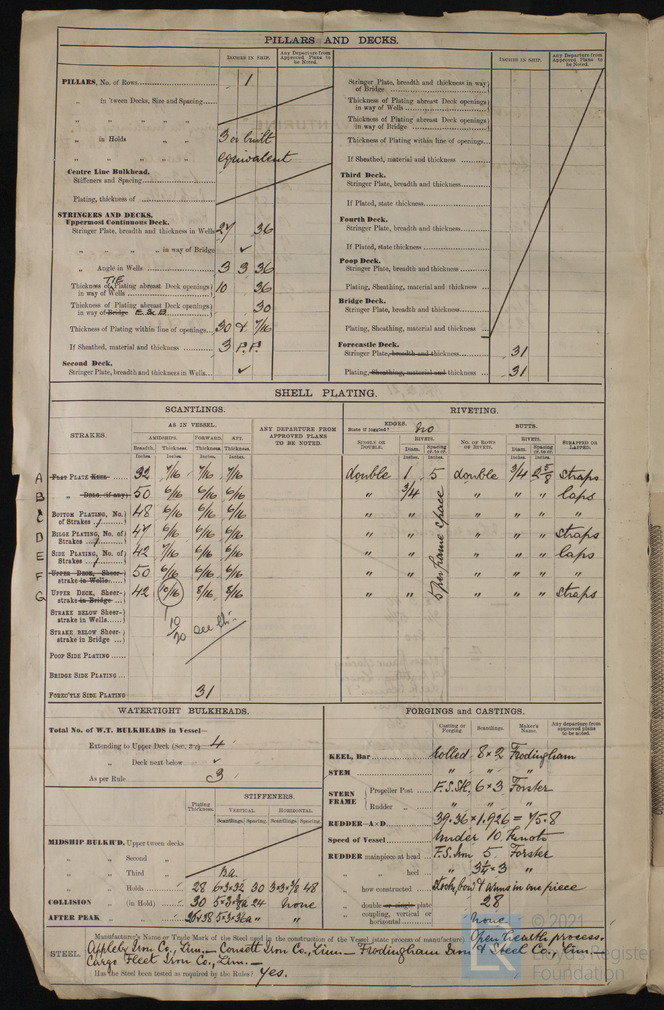 PILLARS AND DECKS.
INCHES IN SHIP.
Any Departure from Approved Plans to be Noted.
INCHES IN SHIP.
Any Departure from Approved Plans to be Noted.
PILLARS, No. of Rows 1
„ in 'tween Decks, Size and Spacing
„ „ „ „
„ in Holds „ „ 3 or built
„ „ „ „ equivalent
Centre Line Bulkhead.
Stiffeners and Spacing
Plating, thickness of
STRINGERS AND DECKS.
Uppermost Continuous Deck.
Stringer Plate, breadth and thickness in Wells 27 36
„ „ „ „ in way of Bridge ✓
„ Angle in Wells 3 3 36
TIE
Thickness of Plating abreast Deck openings in way of Wells 10 36
Thickness of Plating abreast Deck openings in way of Bridge E & B 30
Thickness of Plating within line of openings 30 & 7/16
If Sheathed, material and thickness 3 P.P.
Second Deck.
Stringer Plate, breadth and thickness in Wells ✓
Stringer Plate, breadth and thickness in way of Bridge
Thickness of Plating abreast Deck openings in way of Wells
Thickness of Plating abreast Deck openings in way of Bridge
Thickness of Plating within line of openings
If Sheathed, material and thickness
Third Deck.
Stringer Plate, breadth and thickness
If Plated, state thickness
Fourth Deck.
Stringer Plate, breadth and thickness
If Plated, state thickness
Poop Deck.
Stringer Plate, breadth and thickness
Plating, Sheathing, material and thickness
Bridge Deck.
Stringer Plate, breadth and thickness
Plating, Sheathing, material and thickness
Forecastle Deck.
Stringer Plate, breadth and thickness .31
Plating, Sheathing, material and thickness .31
SHELL PLATING.
SCANTLINGS.
RIVETING.
STRAKES.
AS IN VESSEL.
AMIDSHIPS. FORWARD. AFT.
Breadth. Thickness. Thickness. Thickness.
Inches. Inches. Inches. Inches.
ANY DEPARTURE FROM APPROVED PLANS TO BE NOTED.
EDGES.
State if joggled? no
SINGLE OR DOUBLE.
RIVETS.
Diam. Spacing cr. to cr.
Inches. Inches.
BUTTS.
NO. OF ROWS OF RIVETS.
RIVETS.
Diam. Spacing cr. to cr.
Inches. Inches.
STRAPPED OR LAPPED.
A FLAT PLATE KEEL 32 7/16 7/16 7/16 double 1 5 double 3/4 2 5/8 straps
B „ DBLG. (if any) 50 6/16 6/16 6/16 „ 3/4 „ „ „ laps
C BOTTOM PLATING, No. of Strakes 1 48 6/16 6/16 6/16 „ „ „ „ „ „
D BILGE PLATING, No. of Strakes 1 47 6/16 6/16 6/16 „ „ „ „ „ straps
E SIDE PLATING, No. of Strakes 1 42 7/16 6/16 6/16 „ „ „ „ „ laps
F UPPER DECK, Sheerstrake in Wells 50 6/16 6/16 6/16 „ „ „ „ „ „
G UPPER DECK, Sheerstrake in Bridge 42 10/16 8/16 8/16 „ „ „ „ „ straps
5 per frame space
STRAKE BELOW Sheerstrake in Wells 10/20
STRAKE BELOW Sheerstrake in Bridge
POOP SIDE PLATING
BRIDGE SIDE PLATING
FOREC'TLE SIDE PLATING 31
WATERTIGHT BULKHEADS.
Total No. of W.T. BULKHEADS in Vessel—
Extending to Upper Deck (Sec. 82) 4
„ Deck next below ✓
As per Rule 3
Plating Thickness.
STIFFENERS.
VERTICAL HORIZONTAL
Scantlings. Spacing. Scantlings. Spacing.
MIDSHIP BULKH'D, Upper tween decks
„ „ Second „
„ „ Third „ B.a.
„ „ Holds 28 6×3×32 30 3×3×7/16 48
COLLISION „ (in Hold) 30 24 none
AFTER PEAK „ „ „
FORGINGS and CASTINGS.
Casting or Forging.
Scantlings.
Maker's Name.
Any departure from approved plans to be noted.
KEEL, Bar rolled 8×2 Frodingham
STEM „ „ „
STERN FRAME { Propeller Post F.S.St. 6×3 Forster
Rudder „ „ „ „
RUDDER—A×D 39.36×1.926 = 75.8
Speed of Vessel Under 10 Knots
RUDDER mainpiece at head F.S. Iron 5 Forster
„ „ heel „ 3¾×3 „
„ how constructed Stock, bow & arms in one piece
„ double or single plate 28
„ coupling, vertical or horizontal none
STEEL.
Manufacturer's Name or Trade Mark of the Steel used in the construction of the Vessel (state process of manufacture) Open hearth process.
Appleby Iron Co., Lim.— Consett Iron Co., Lim.— Frodingham Iron & Steel Co., Lim.—
Cargo Fleet Iron Co., Lim.—
Has the Steel been tested as required by the Rules? Yes.
© 2021
Lloyd's Register
Foundation